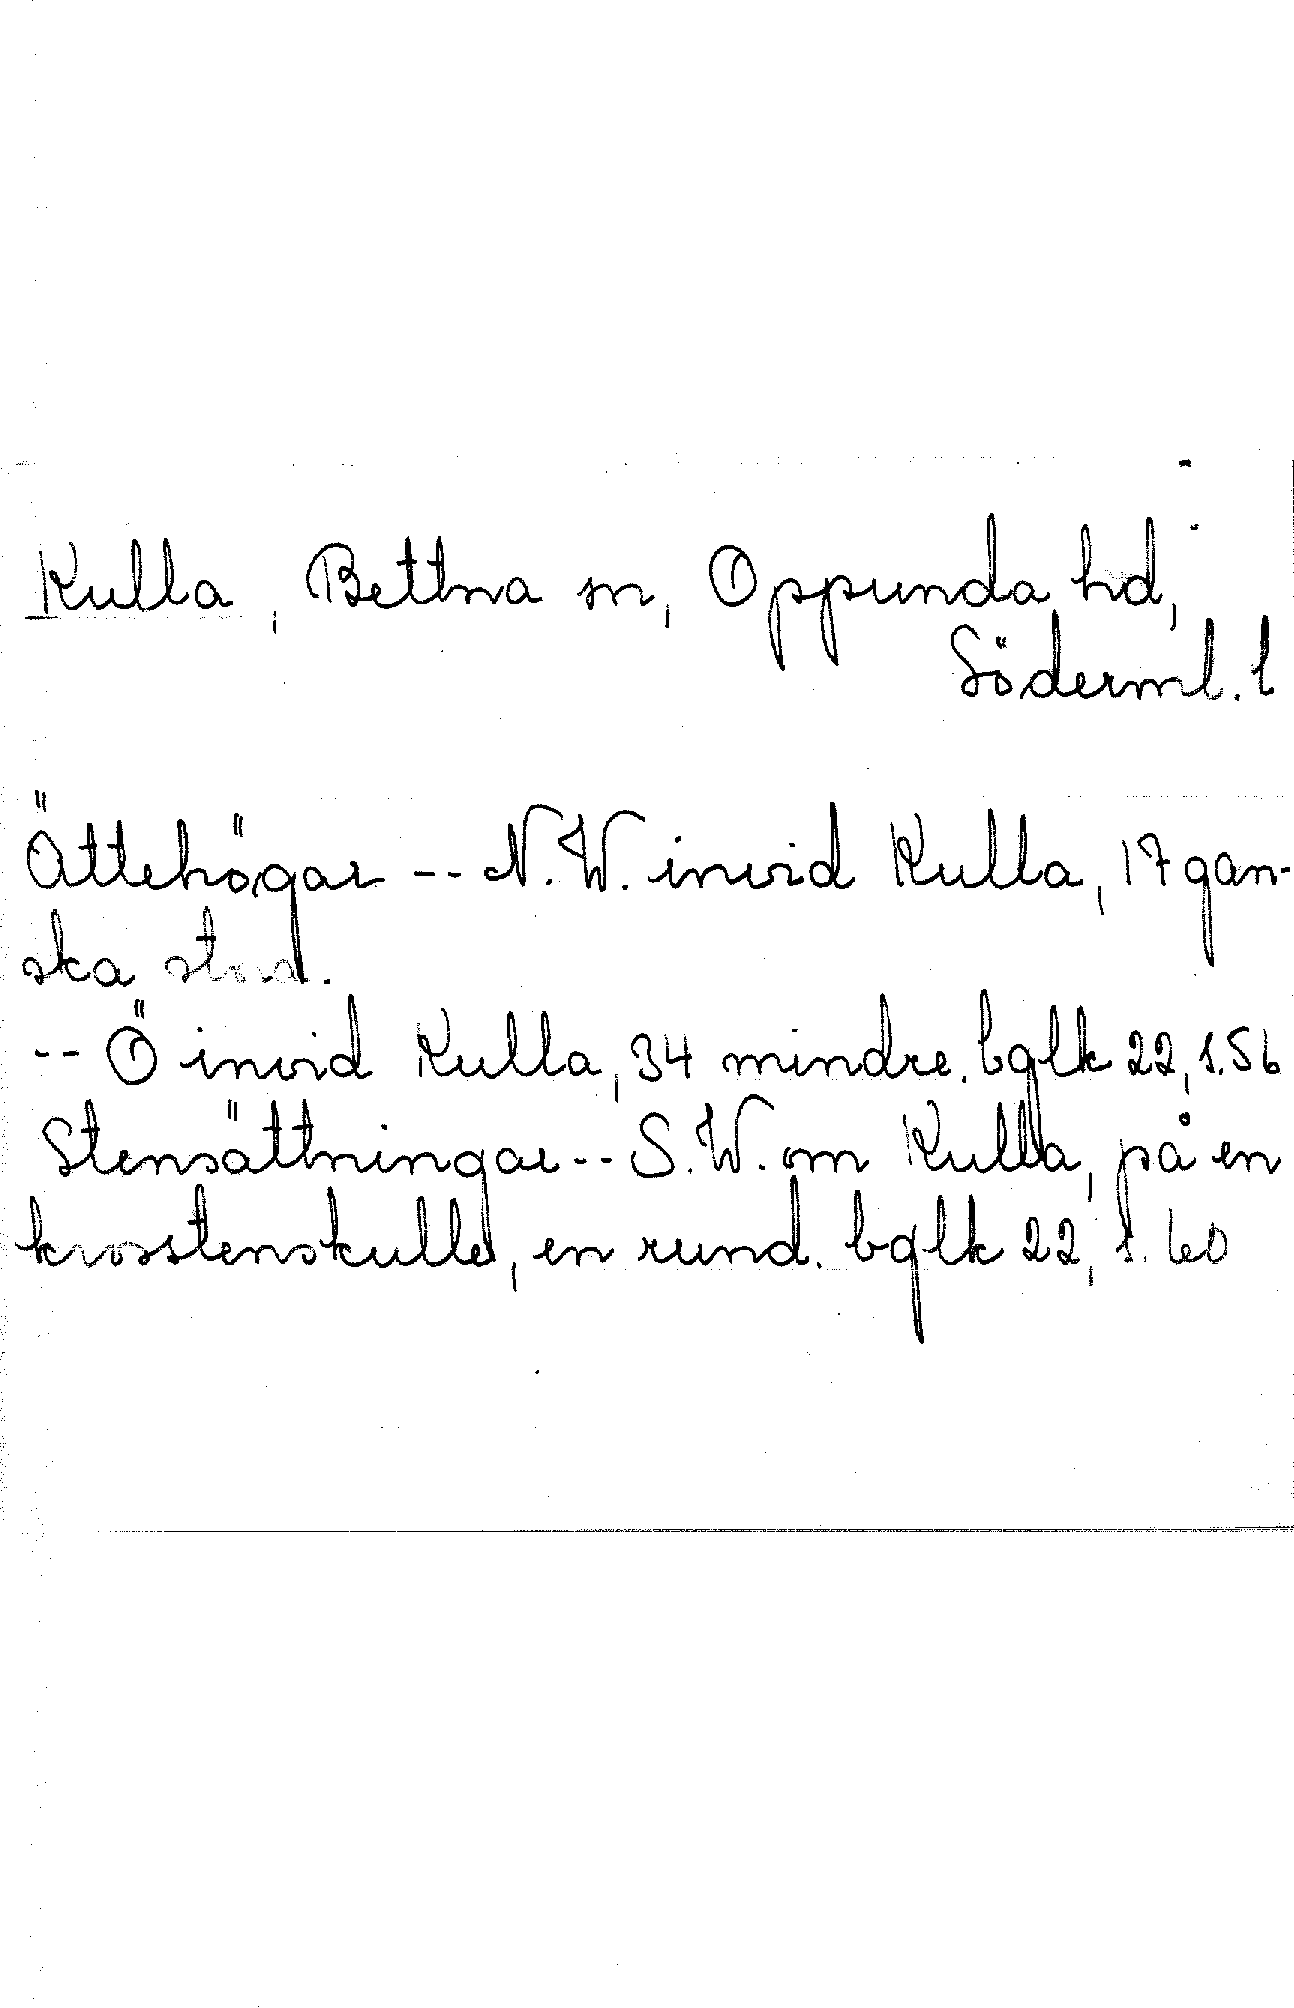 Kulla, Bettna sn, Oppunda hd,
Söderml. l
Ättehögar -- N.W. invid Kulla, 17 gan-
ska stora.
-- Ö invid Kulla, 34 mindre. bglk 22, s. 56
Stensättningar -- S.W. om Kulla, på en
krosstenskulle, en rund. bglk 22, s. 60